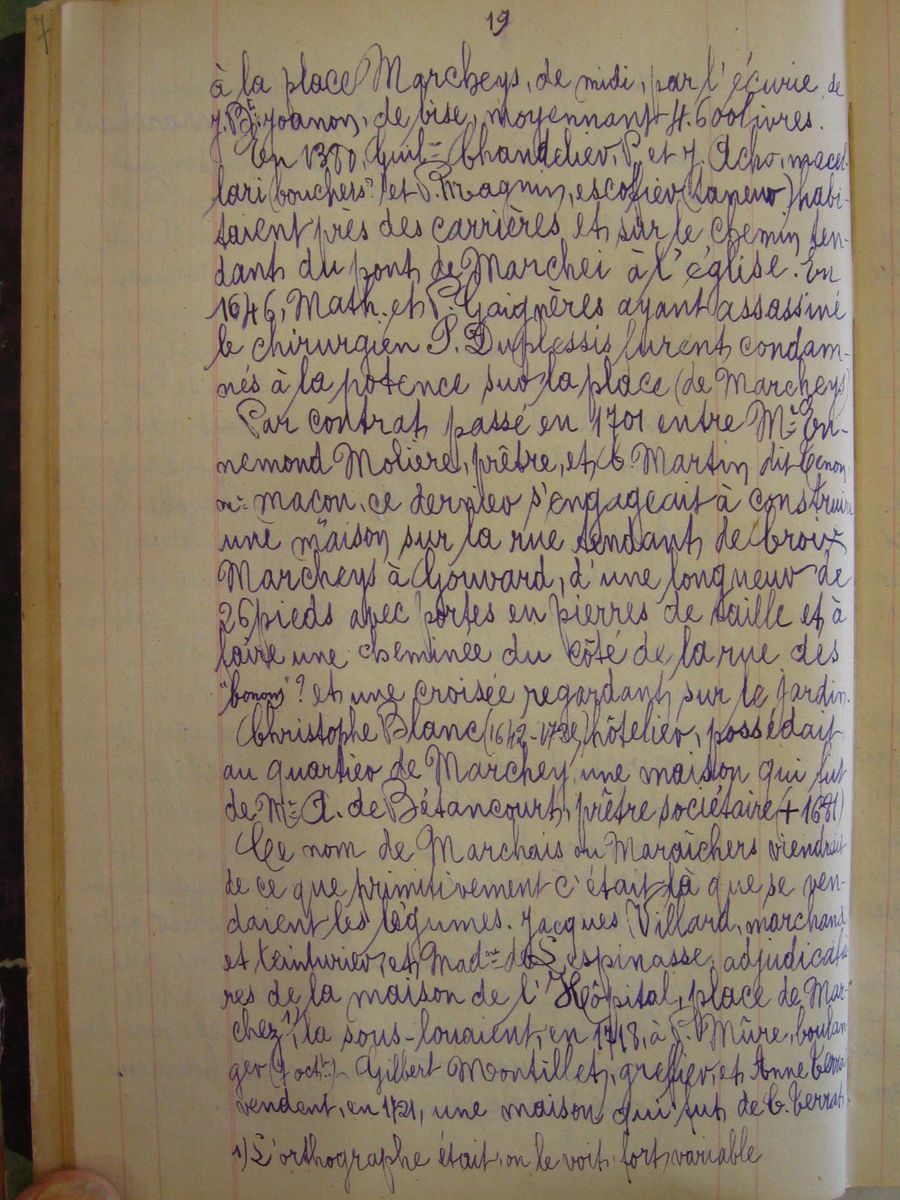 7
19
à la place Marcheys, de midi, par l'écurie de
J. Bt Joanon, de bise, moyennant 4.600 livres.
En 1380, Guil= Chandelier, P. et J. Acho, macel-
lari (bouchers?) et P. Magnin, escoffier (taneur) habi-
taient près des carrières et sur le chemin ten-
dant du pont de Marchei à l'église. En
1646, Math. et P. Gaignères ayant assassiné
le chirurgien P. Duplessis furent condam-
nés à la potence sur la place (de Marcheys)
Par contrat passé en 1701 entre Mr En-
nemond Molière, prêtre, et C. Martin dit Cenon,
m= maçon, ce dernier s'engageait à construire
une maison sur la rue tendant de Croix
Marcheys à Gouvard, d'une longueur de
26 pieds avec portes en pierres de taille et à
faire une cheminée du côté de la rue des
"bonons"? et une croisée regardant sur le jardin.
Christophe Blanc (1642-1722) hôtelier, possédait
au quartier de Marchey une maison qui fut
de Mr A. de Bétancourt, prêtre sociétaire (+ 1681)
Ce nom de Marchais ou Maraîchers viendrait
de ce que primitivement c'était là que se ven-
daient les légumes. Jacques Villard, marchand
et teinturier, et Madme de Lespinasse, adjudicatai
res de la maison de l'Hôpital, place de Mar-
chez 1), la sous-louaient, en 1718, à P. Mûre, boulan
ger (7 oct.) - Gilbert Montillet, greffier, et Anne Terra
vendent, en 1721, une maison qui fut de C. Terrat
1) L'orthographe était, on le voit, fort variable